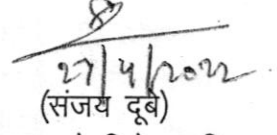 27/4/2022
(संजय दूबे)